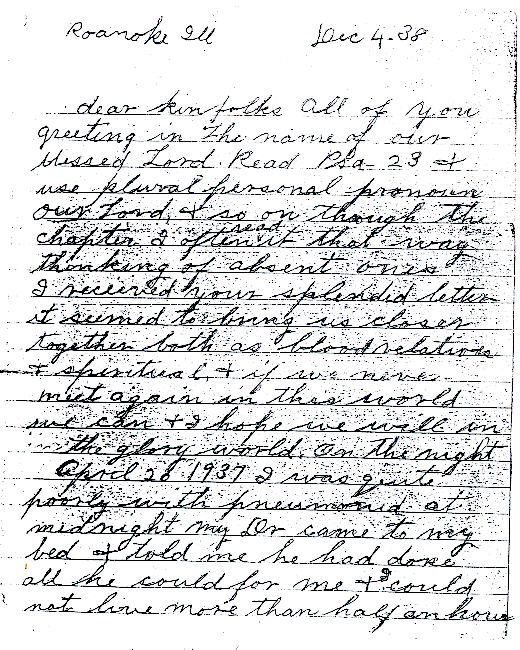 Roanoke Ill Dec 4-38
dear kinfolks All of you
greeting in The name of our
blessed Lord. Read Psa- 23 &
use plural personal pronoun
our Lord, & so on though the
chapter I often read it that way
thinking of absent ones
I received your splendid letter
it seemed to bring us closer
together both as blood relation
& spiritual, & if we never
meet again in this world
we can & I hope we will in
the glory world. On the night
April 26 1937 I was quite
poorly with pneumonia at
midnight my Dr came to my
bed & told me he had done
all he could for me & I could
not live more than half an hour